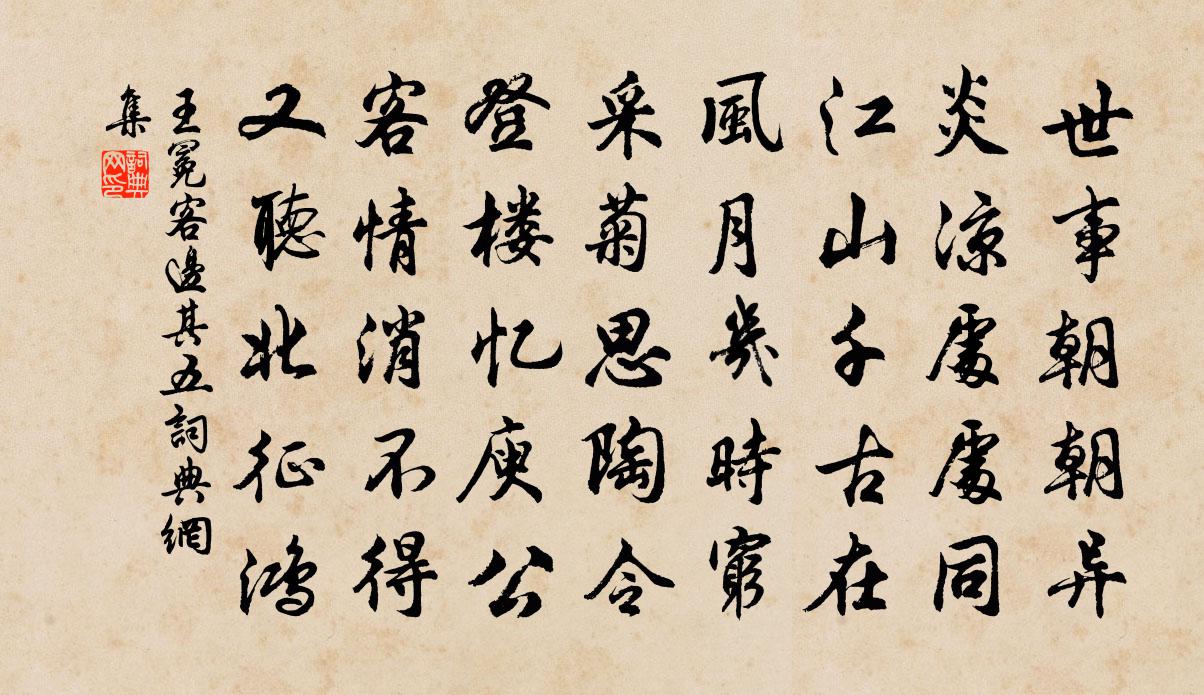 世事朝朝异
炎涼處處同
江山千古在
風月幾時窮
采菊思陶令
登楼忆庾公
客情消不得
又聽北征鸿
王冕客邊其五詞典網
集
詞典
网印